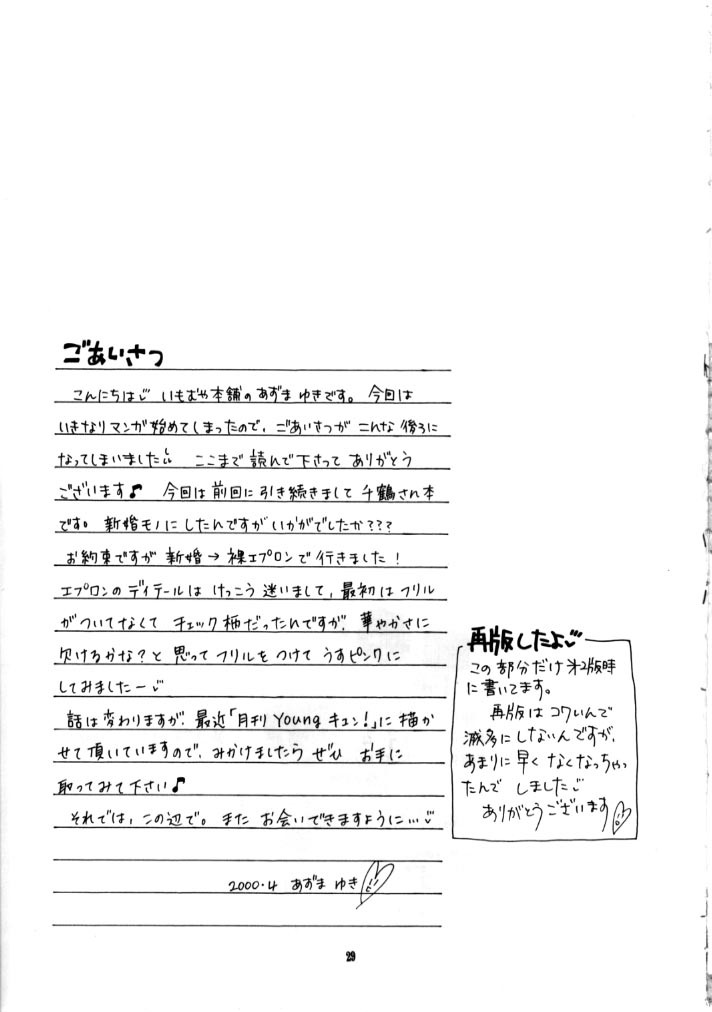 ごあいさつ
こんにちは♡ いもおや本舗のあずまゆきです。今回は
いきなりマンガ始めてしまったので、ごあいさつがこんな後ろに
なってしまいました ここまで読んで下さってありがとう
ございます♪ 今回は前回に引き続きまして千鶴さん本
です。新婚モノにしたんですがいかがでしたか???
お約束ですが新婚→裸エプロンで行きました!
エプロンのディテールはけっこう迷いまして、最初はフリル
がついてなくてチェック柄だったんですが、華やかさに
欠けるかな?と思ってフリルをつけてうすピンクに
してみましたー♡
話は変わりますが、最近「月刊Youngキュン!」に描か
せて頂いていますので、みかけましたらぜひお手に
取ってみて下さい♪
それでは、この辺で。またお会いできますように…♡
2000.4 あずまゆき
再版したよ♡
この部分だけ第2版時
に書いてます。
再版はコワいんで
滅多にしないんですが、
あまりに早くなくなっちゃっ
たんでしました♡
ありがとうございます
29